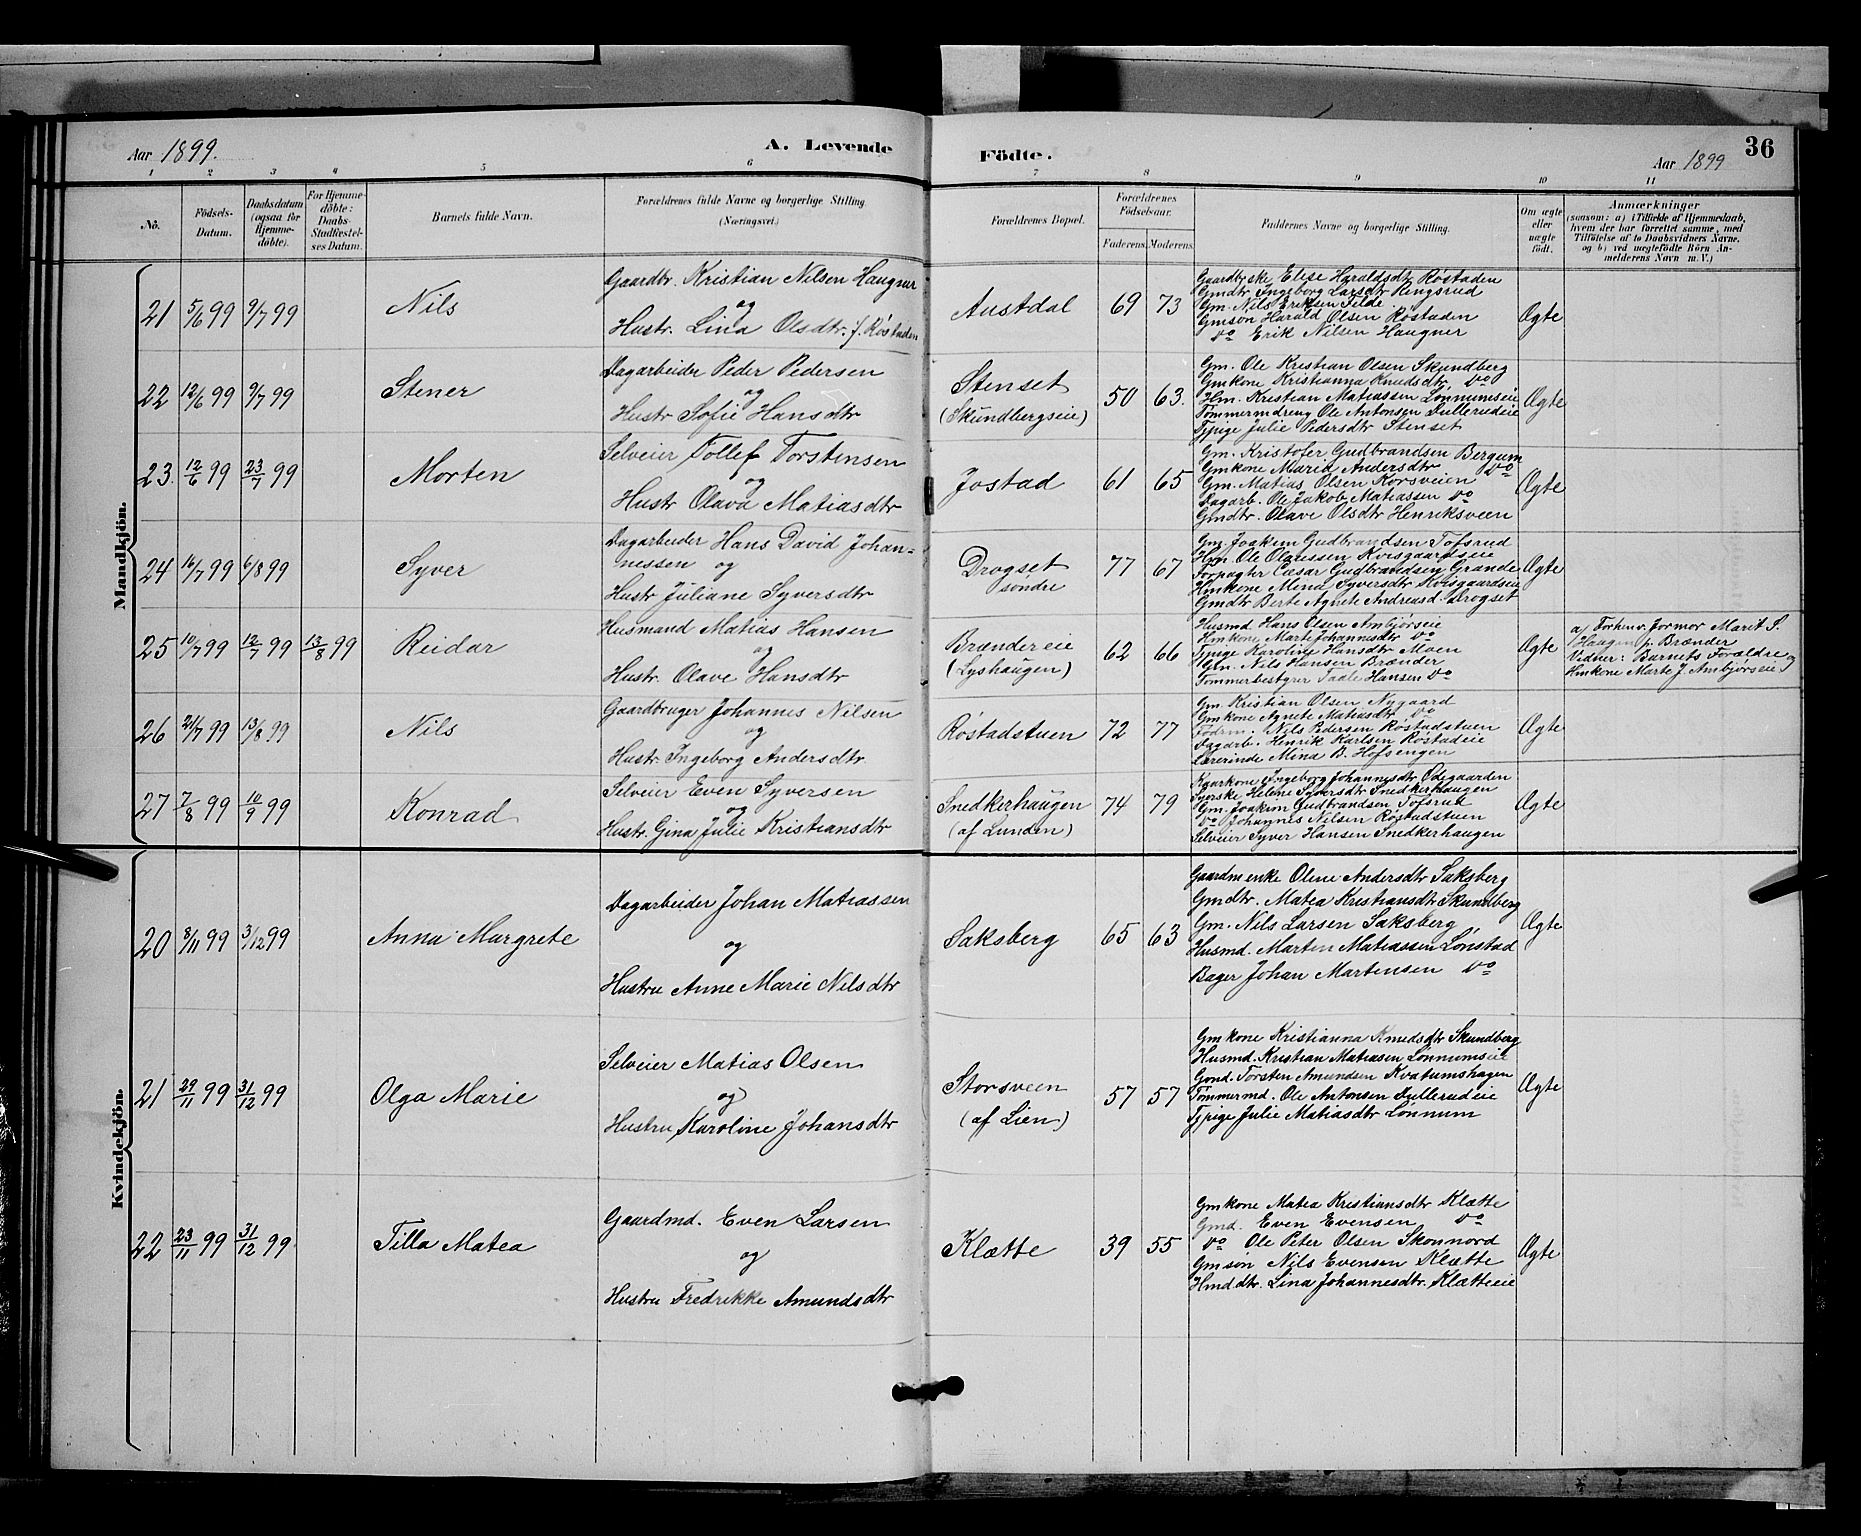 Aar 1899.
A. Levende
Födte.
Aar 1899
36
1 2 3 4 5 6 7 8 9 10 11
No.
Födsels-
Datum.
Daabsdatum
(ogsaa for
Hjemme-
döbte).
For Hjemme-
döbte:
Daabs-
Stadfæstel-
ses Datum.
Barnets fulde Navn.
Forældrenes fulde Navne og borgerlige Stilling.
(Næringsvei.)
Forældrenes Bopæl.
Forældrenes
Födselsaar.
Faderens. Moderens.
Faddernes Navne og borgerlige Stilling.
Om ægte
eller
uægte
født.
Anmærkninger
(saasom: a) i Tilfælde af Hjemmedaab,
hvem der har forrettet samme, med
Tilföielse af to Daabsvidners Navne,
og b) ved uægtefödte Börn An-
melderens Navn m. V.)
Mandkjön.
21 5/6 99 9/7 99 Nils
Gaardbr. Kristian Nilsen Haugner
og
Hustr. Lina Olsdtr. f. Røstaden
Austdal 69 73
Gaardbrske Elise Haraldsdtr Røstaden
Gmdtr Ingeborg Larsdtr Ringsrud
Gm. Nils Eriksen Tilde
Gmsøn Harald Olsen Røstaden
do Erik Nilsen Haugner
Ægte
22 12/6 99 9/7 99 Stener
Dagarbeider Peder Pedersen
og
Hustr Sofie Hansdtr
Stenset
(Skundbergseie)
50 63.
Gm. Ole Kristian Olsen Skundberg
Gmkone Kristianna Knudsdtr. do
Hm. Kristian Matiassen Lønnumseie
Tømmermdreng Ole Antonsen Dullerudeie
Tjpige Julie Pedersdtr Stenset
Ægte
23. 12/6 99 23/7 99 Morten
Selveier Tollef Torstensen
og
Hustr Olava Matiasdtr
Jostad 61 65
Gm. Kristofer Gudbrandsen Bergum
Gmkone Marie Andersdtr do
Gm. Matias Olsen Korsveien
Dagarb. Ole Jakob Matiassen do
Gmdtr. Olave Olsdtr Henriksveen
Ægte
24 16/7 99 6/8 99 Syver
Dagarbeider Hans David Johan-
nessen og
Hustr Juliane Syversdtr
Drogset
søndre
77 67
Gm. Joakim Gudbrandsen Tofsrud
Hm. Ole Olaussen Kvisgaardseie
Forpagter Cæsar Gudbrandsen Grande
Hmkone Mina Syversdtr Kvisgaardseie
Gmdtr Berte Agnete Andreasd. Drogset
Ægte
25 10/7 99 12/7 99 13/8 99 Reidar
Husmand Matias Hansen
og
Hustr. Olave Hansdtr
Brændereie
(Lyshaugen)
62 66
Husmd Hans Olsen Ambjørseie
Hmkone Marte Johannesdtr do
Tjpige Karoline Hansdtr Moen
Gm. Nils Hansen Brænder
Tømmerbestyrer Taale Hansen do
Ægte
a) Forhenv. Jormor Marit S.
Haugen p. Brænder
Vidner: Barnets Forældre og
Hmkone Marte J. Ambjørseie
26 21/7 99 13/8 99 Nils
Gaardbruger Johannes Nilsen
og
Hustr. Ingeborg Andersdtr.
Røstadstuen 72 77
Gm. Kristian Olsen Nygaard
Gmkone Agnete Matiasdtr do
Fødrm. Nils Pedersen Røstadstuen
Dagarb. Henrik Karlsen Røstadeie
Lærerinde Mina B. Hofsengen
Ægte
27 7/8 99 10/9 99 Konrad
Selveier Even Syversen
og
Hustr. Gina Julie Kristiansdtr
Snedkerhaugen
(af Lunden)
74 79
Kaarkone Ingeborg Johannesdtr Odegaarden
Syerske Helene Syversdtr Snedkerhaugen
Gm. Joakim Gudbrandsen Tofsrud
do Johannes Nilsen Røstadstuen
Selveier Syver Hansen Snedkerhaugen
Ægte
Kvindekjön.
20 8/11 99 3/12 99 Anna Margrete
Dagarbeider Johan Matiassen
og
Hustru Anne Marie Nilsdtr
Saksberg 65 63
Gaardmenke Oline Andersdtr Saksberg
Gmdtr. Matea Kristiansdtr Skundberg
Gm. Nils Larsen Saksberg
Husmd. Marten Matiassen Lønstad
Bager Johan Martensen do
Ægte
21 29/11 99 31/12 99 Olga Marie
Selveier Matias Olsen
og
Hustru Karoline Johansdtr
Storsveen
(af Lien)
57 57
Gmkone Kristianna Knudsdtr Skundberg
Husmd. Kristian Matiasen Lønnumseie
Gmd. Torsten Amundsen Kvatumshagen
Tømmermd. Ole Antonsen Dullerudeie
Tjpige Julie Matiasdtr Lønnum
Ægte
22 23/11 99 31/12 99 Tilla Matea
Gaardmd. Even Larsen
og
Hustru Fredrikke Amundsdtr
Klætte 39 55
Gmkone Matea Kristiansdtr Klætte
Gmd. Even Evensen do
do Ole Peter Olsen Skonnord
Gmsøn Nils Evensen Klætte
Hmddtr. Lina Johannesdtr. Klætteeie
Ægte